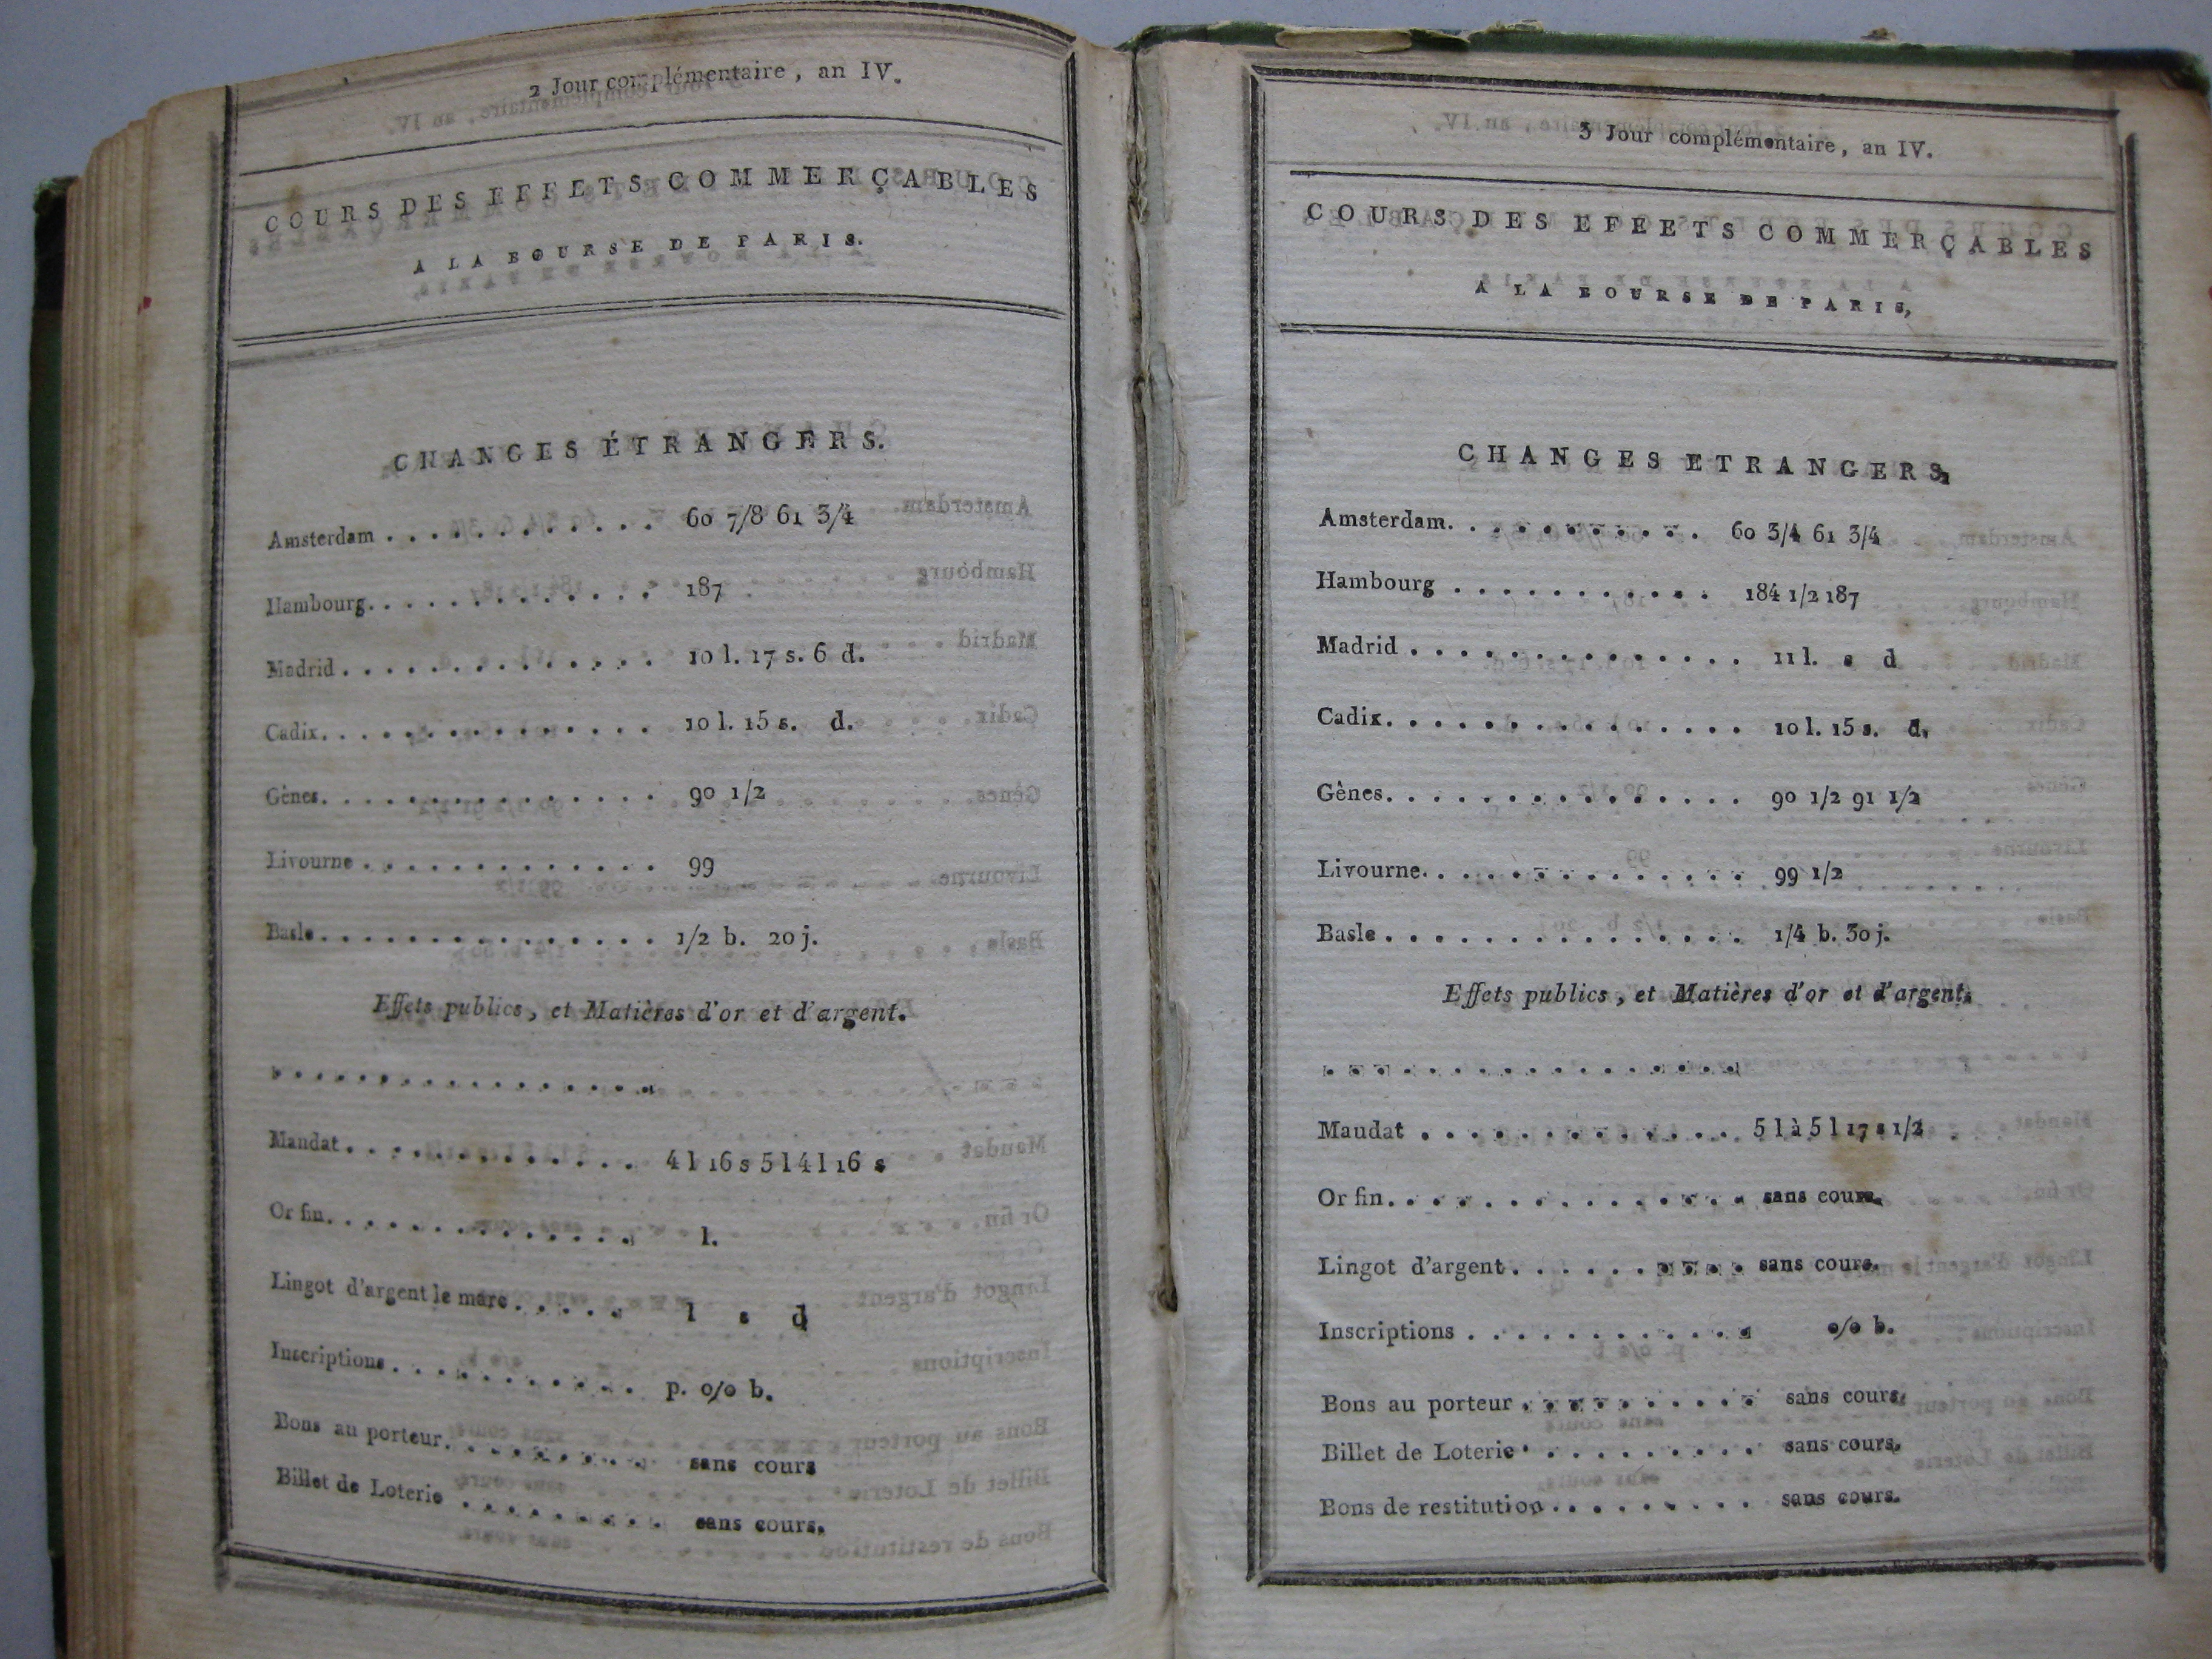 2 Jour complémentaire, an IV.
COURS DES EFFETS COMMERÇABLES
A LA BOURSE DE PARIS.
CHANGES ÉTRANGERS.
Amsterdam . . . . . . . . . . . . 60 7/8 61 3/4
Hambourg. . . . . . . . . . . . . 187
Madrid . . . . . . . . . . . . . . 10 l. 17 s. 6 d.
Cadix. . . . . . . . . . . . . . . 10 l. 15 s. d.
Gènes. . . . . . . . . . . . . . . 90 1/2
Livourne . . . . . . . . . . . . . 99
Basle. . . . . . . . . . . . . . . 1/2 b. 20 j.
Effets publics, et Matières d'or et d'argent.
. . . . . . . . . . . . . . . . . .
Mandat . . . . . . . . . . . . . 4 l 16 s 5 l 4 l 16 s
Or fin. . . . . . . . . . . . . . l.
Lingot d'argent le marc . . . . . l s d
Inscriptions . . . . . . . . . . . p. o/o b.
Bons au porteur. . . . . . . . . sans cours
Billet de Loterie . . . . . . . . sans cours.
3 Jour complémentaire, an IV.
COURS DES EFEETS COMMERÇABLES
A LA BOURSE DE PARIS,
CHANGES ETRANGERS,
Amsterdam. . . . . . . . . . . 60 3/4 61 3/4
Hambourg . . . . . . . . . . . 184 1/2 187
Madrid . . . . . . . . . . . . . . 11 l. s d
Cadix. . . . . . . . . . . . . . . 10 l. 15 s. d.
Gênes. . . . . . . . . . . . . . . 90 1/2 91 1/2
Livourne. . . . . . . . . . . . . . 99 1/2
Basle . . . . . . . . . . . . . . . 1/4 b. 30 j.
Effets publics, et Matières d'or et d'argent.
. . . . . . . . . . . . . . . . . .
Maudat . . . . . . . . . . . . . 5 l à 5 l 17 s 1/2
Or fin. . . . . . . . . . . . . . . sans cours.
Lingot d'argent . . . . . . . . . . sans cours.
Inscriptions . . . . . . . . . . . . o/o b.
Bons au porteur . . . . . . . . . . sans cours.
Billet de Loterie . . . . . . . . . . sans cours.
Bons de restitution. . . . . . . . . sans cours.